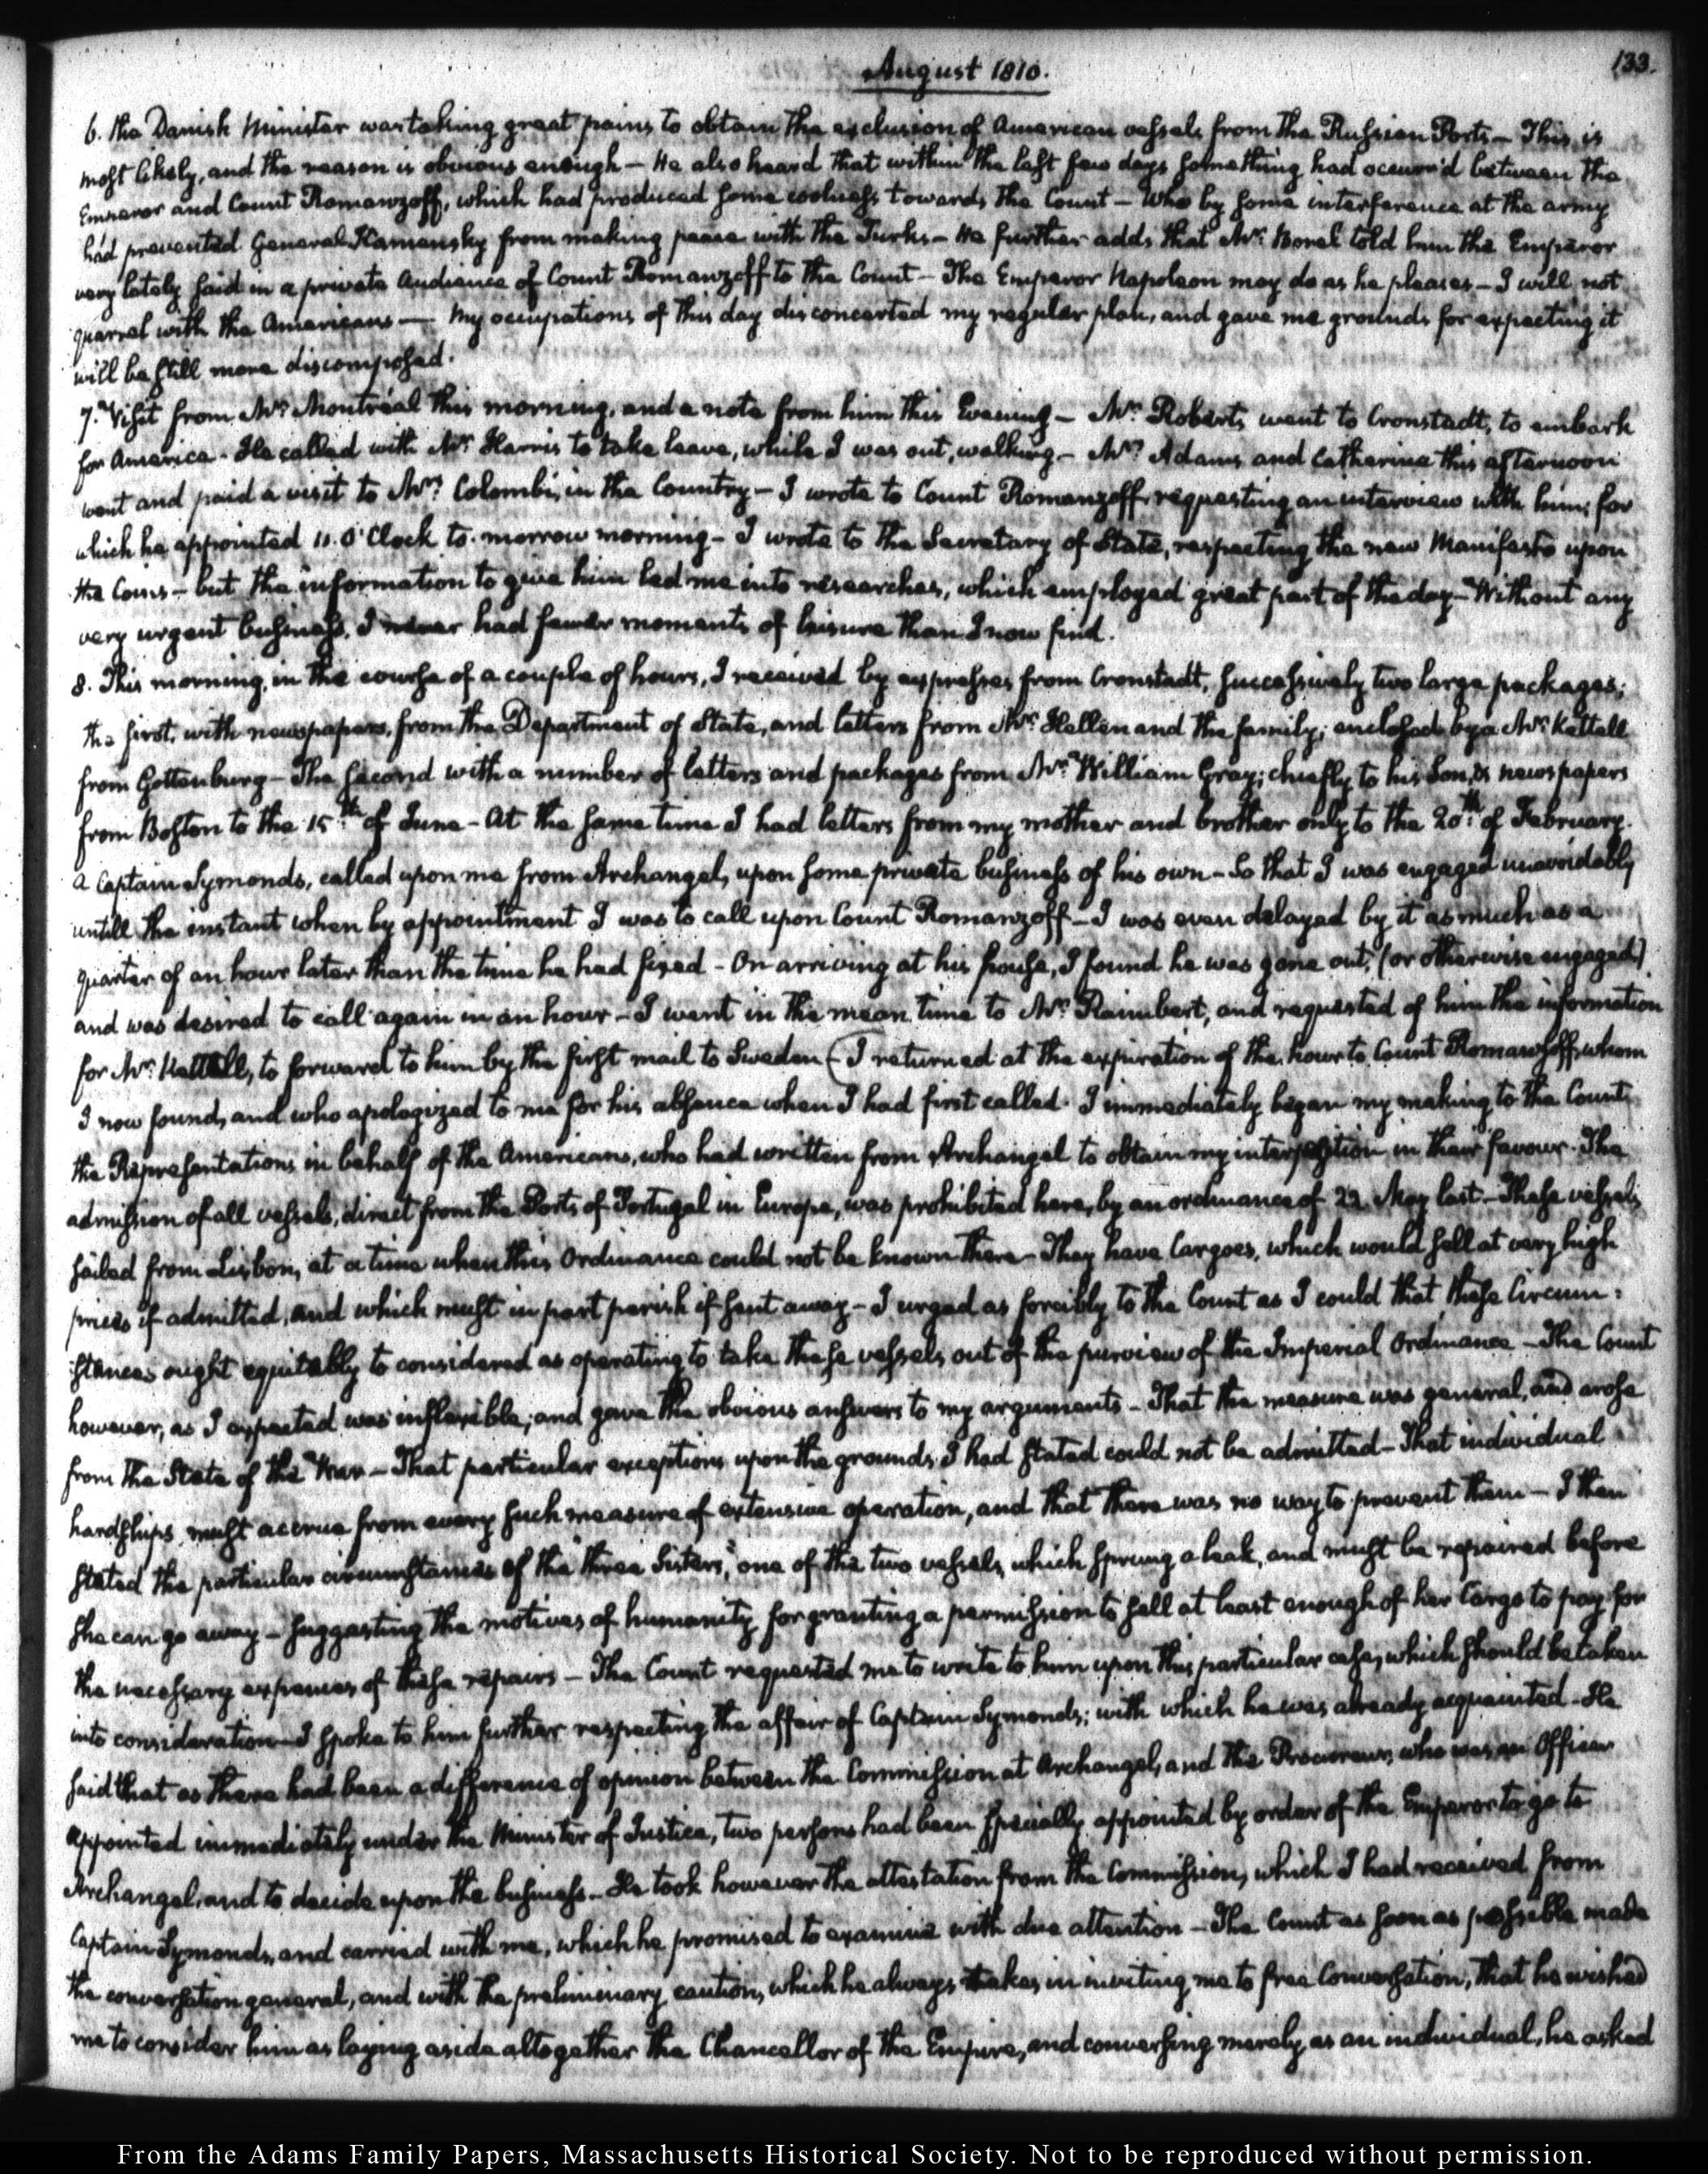 133.
August 1810.
6. the Danish Minister was taking great pains to obtain the exclusion of American vessels from the Russian Ports — This is
most likely, and the reason is obvious enough — He also heard that within the last few days something had occurr'd between the
Emperor and Count Romanzoff, which had produced some coolness towards the Count — Who by some interference at the army
had prevented General Kamensky from making peace with the Turks — He further adds that Mr. Borel told him the Emperor
very lately said in a private Audience of Count Romanzoff to the Count — The Emperor Napoleon may do as he pleases — I will not
quarrel with the Americans — My occupations of this day disconcerted my regular plan, and gave me grounds for expecting it
will be still more discomposed.
7. Visit from Mr. Montréal this morning, and a note from him this Evening — Mr. Roberts went to Cronstadt, to embark
for America. He called with Mr. Harris to take leave, while I was out, walking — Mrs. Adams and Catherine this afternoon
went and paid a visit to Mrs. Colombi, in the Country — I wrote to Count Romanzoff, requesting an interview with him; for
which he appointed 11. O'Clock to-morrow morning — I wrote to the Secretary of State, respecting the new Manifesto upon
the Coins — but the information to give him led me into researches, which employed great part of the day — Without any
very urgent business, I never had fewer moments of leisure than I now find.
8. This morning, in the course of a couple of hours, I received by expresses from Cronstadt, successively two large packages;
the first, with newspapers, from the Department of State, and letters from Mr. Hellen and the family; enclosed by a Mr. Kettell
from Gottenburg — The second with a number of letters and packages from Mr. William Gray; chiefly to his Son, & newspapers
from Boston to the 15th. of June — At the same time I had letters from my mother and brother only to the 20th. of February.
A Captain Symonds, called upon me from Archangel, upon some private business of his own — So that I was engaged unavoidably
untill the instant when by appointment I was to call upon Count Romanzoff — I was even delayed by it as much as a
quarter of an hour later than the time he had fixed — On arriving at his house, I found he was gone out, (or otherwise engaged)
and was desired to call again in an hour — I went in the mean time to Mr. Raimbert, and requested of him the information
for Mr. Kettell, to forward to him by the first mail to Sweden (I returned at the expiration of the hour to Count Romanzoff, whom
I now found, and who apologized to me for his absence when I had first called. I immediately began my making to the Count,
the Representations in behalf of the Americans, who had written from Archangel to obtain my interposition in their favour. The
admission of all vessels, direct from the Ports of Portugal in Europe, was prohibited here, by an ordinance of 22 May last — These vessels
sailed from Lisbon, at a time when this Ordinance could not be known there — They have Cargoes, which would sell at very high
prices if admitted, and which must in part perish if sent away — I urged as forcibly to the Count as I could that these Circum:
:stances ought equitably to considered as operating to take these vessels out of the purview of the Imperial Ordinance — The Count
however, as I expected was inflexible; and gave the obvious answers to my arguments — That the measure was general, and arose
from the State of the War — That particular exceptions upon the grounds I had stated could not be admitted — That individual
hardships must accrue from every such measure of extensive operation, and that there was no way to prevent them — I then
stated the particular circumstances of the "three Sisters," one of the two vessels, which sprung a leak, and must be repaired before
she can go away — suggesting the motives of humanity for granting a permission to sell at least enough of her Cargo to pay for
the necessary expenses of these repairs — The Count requested me to write to him upon this particular case, which should be taken
into consideration — I spoke to him further respecting the affair of Captain Symonds; with which he was already acquainted — He
said that as there had been a difference of opinion between the Commission at Archangel, and the Procureur, who was an Officer
appointed immediately under the Minister of Justice, two persons had been specially appointed by order of the Emperor to go to
Archangel, and to decide upon the business — He took however the attestation from the Commission, which I had received from
Captain Symonds, and carried with me, which he promised to examine with due attention — The Count as soon as possible made
the conversation general, and with the preliminary caution, which he always takes in inviting me to free Conversation, that he wished
me to consider him as laying aside altogether the Chancellor of the Empire, and conversing merely as an individual, he asked
From the Adams Family Papers, Massachusetts Historical Society. Not to be reproduced without permission.